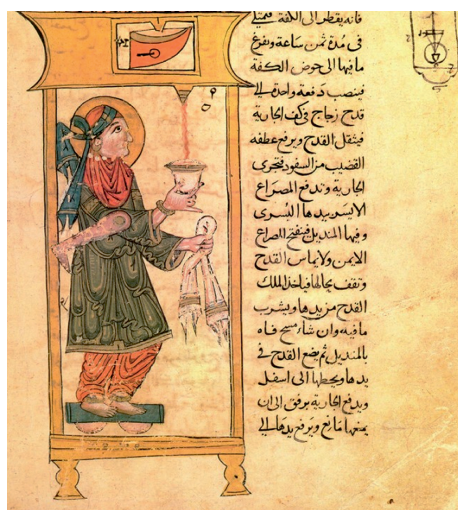 فانه يقطر الى الكفة فيمتلى
فى مدة ثمن ساعة ويفرغ
ما فيها الى حوض الكفة
فينصب دفعة واحدة الى
قدح زجاج فى كف الجارية
فيثقل القدح ويرفع عطفه
القضيب من السفود فتجرى
الجارية وتدفع المصراع
الايسر بيدها اليسرى
وفيها المنديل فينفتح المصراع
الايمن ولا يماس القدح
وتقف بحالها فياخذ الملك
القدح من يدها ويشرب
ما فيه وان شا مسح فاه
بالمنديل ثم يضع القدح فى
يدها ويحطها الى اسفل
ويدفع الجارية برفق الى ان
يمنعها مانع ويرفع يدها الى